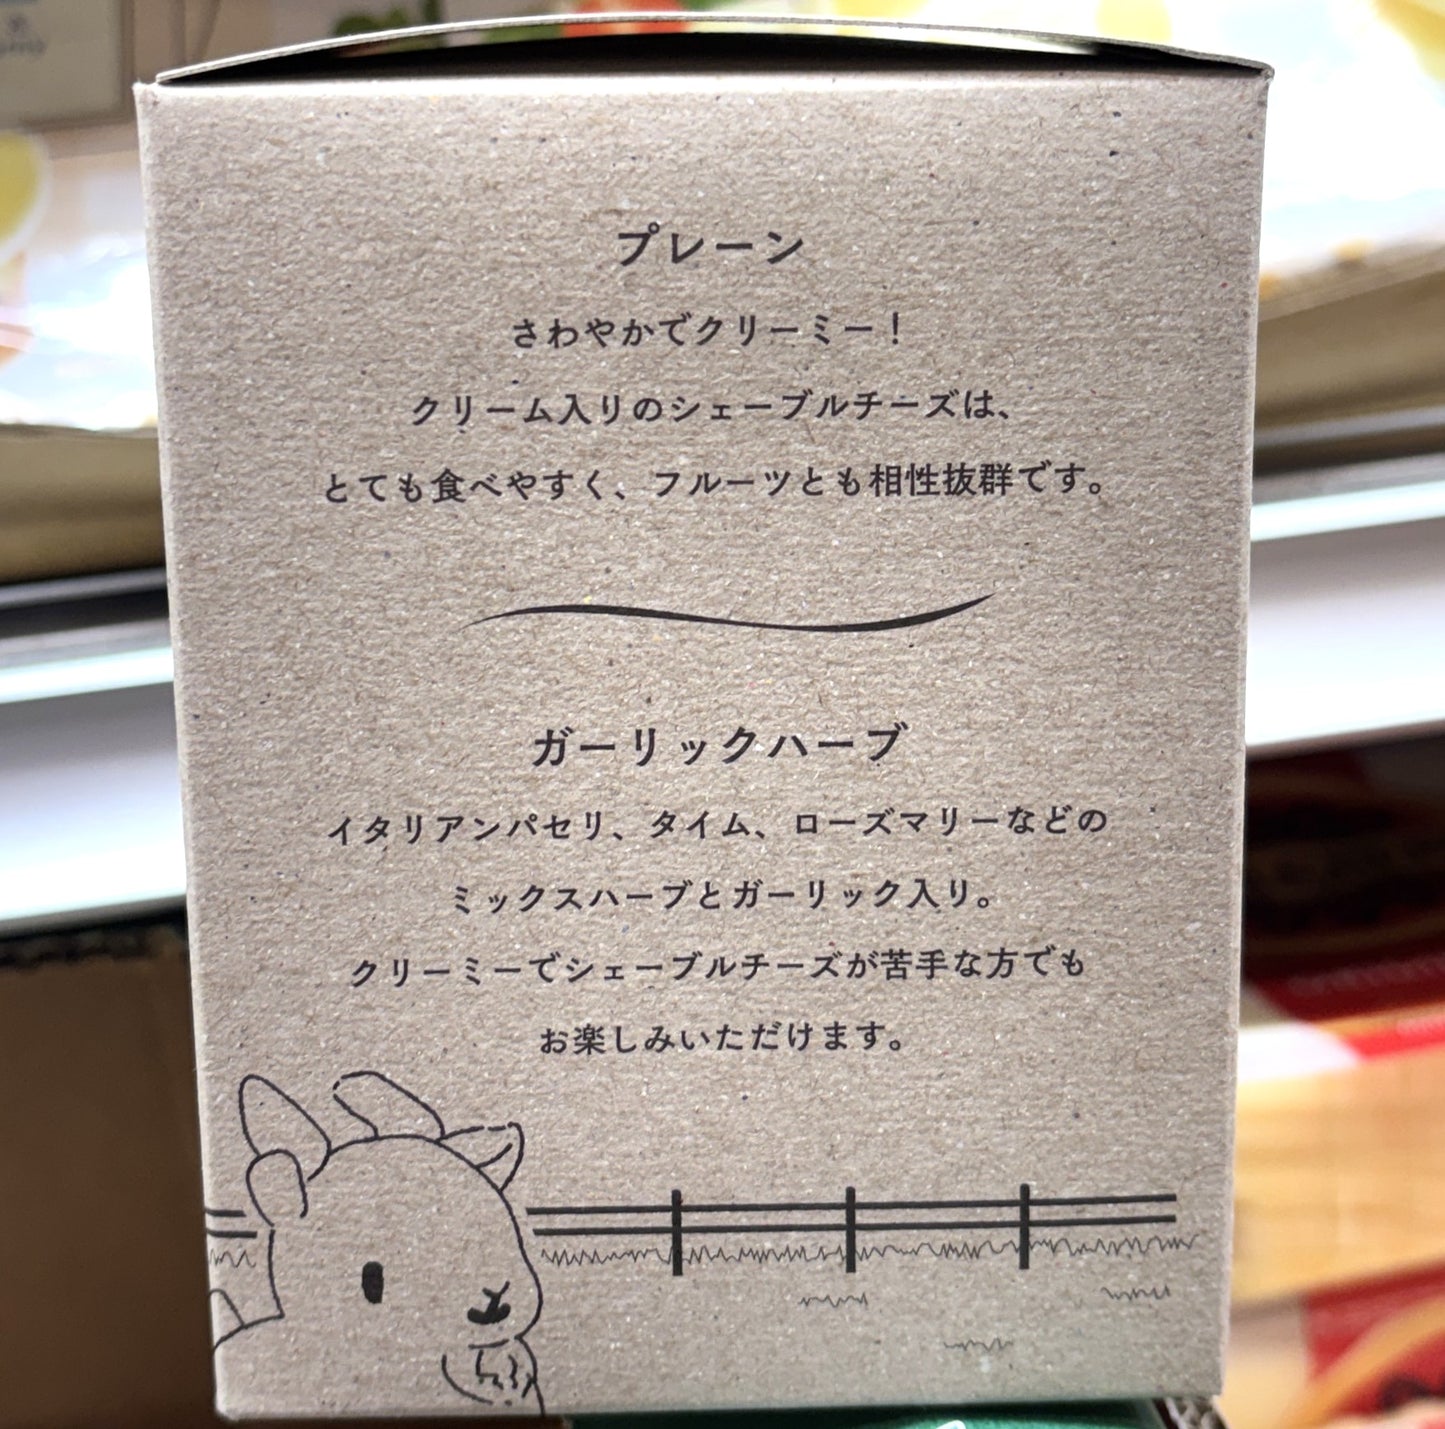 プレーン
さわやかでクリーミー！
クリーム入りのシェーブルチーズは、
とても食べやすく、フルーツとも相性抜群です。
ガーリックハーブ
イタリアンパセリ、タイム、ローズマリーなどの
ミックスハーブとガーリック入り。
クリーミーでシェーブルチーズが苦手な方でも
お楽しみいただけます。